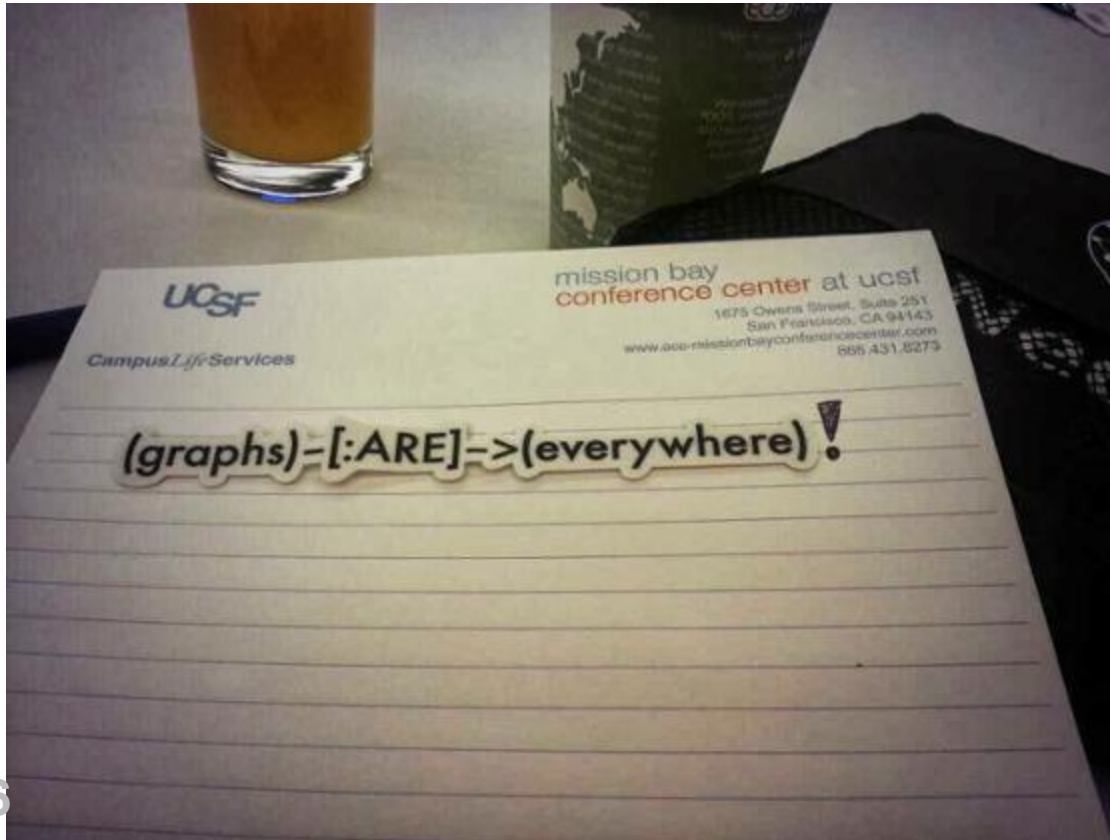 UCSF
CampusLifeServices
mission bay
conference center at ucsf
1675 Owens Street, Suite 251
San Francisco, CA 94143
www.acc-missionbayconferencecenter.com
866.431.8273
(graphs)-[:ARE]->(everywhere)!